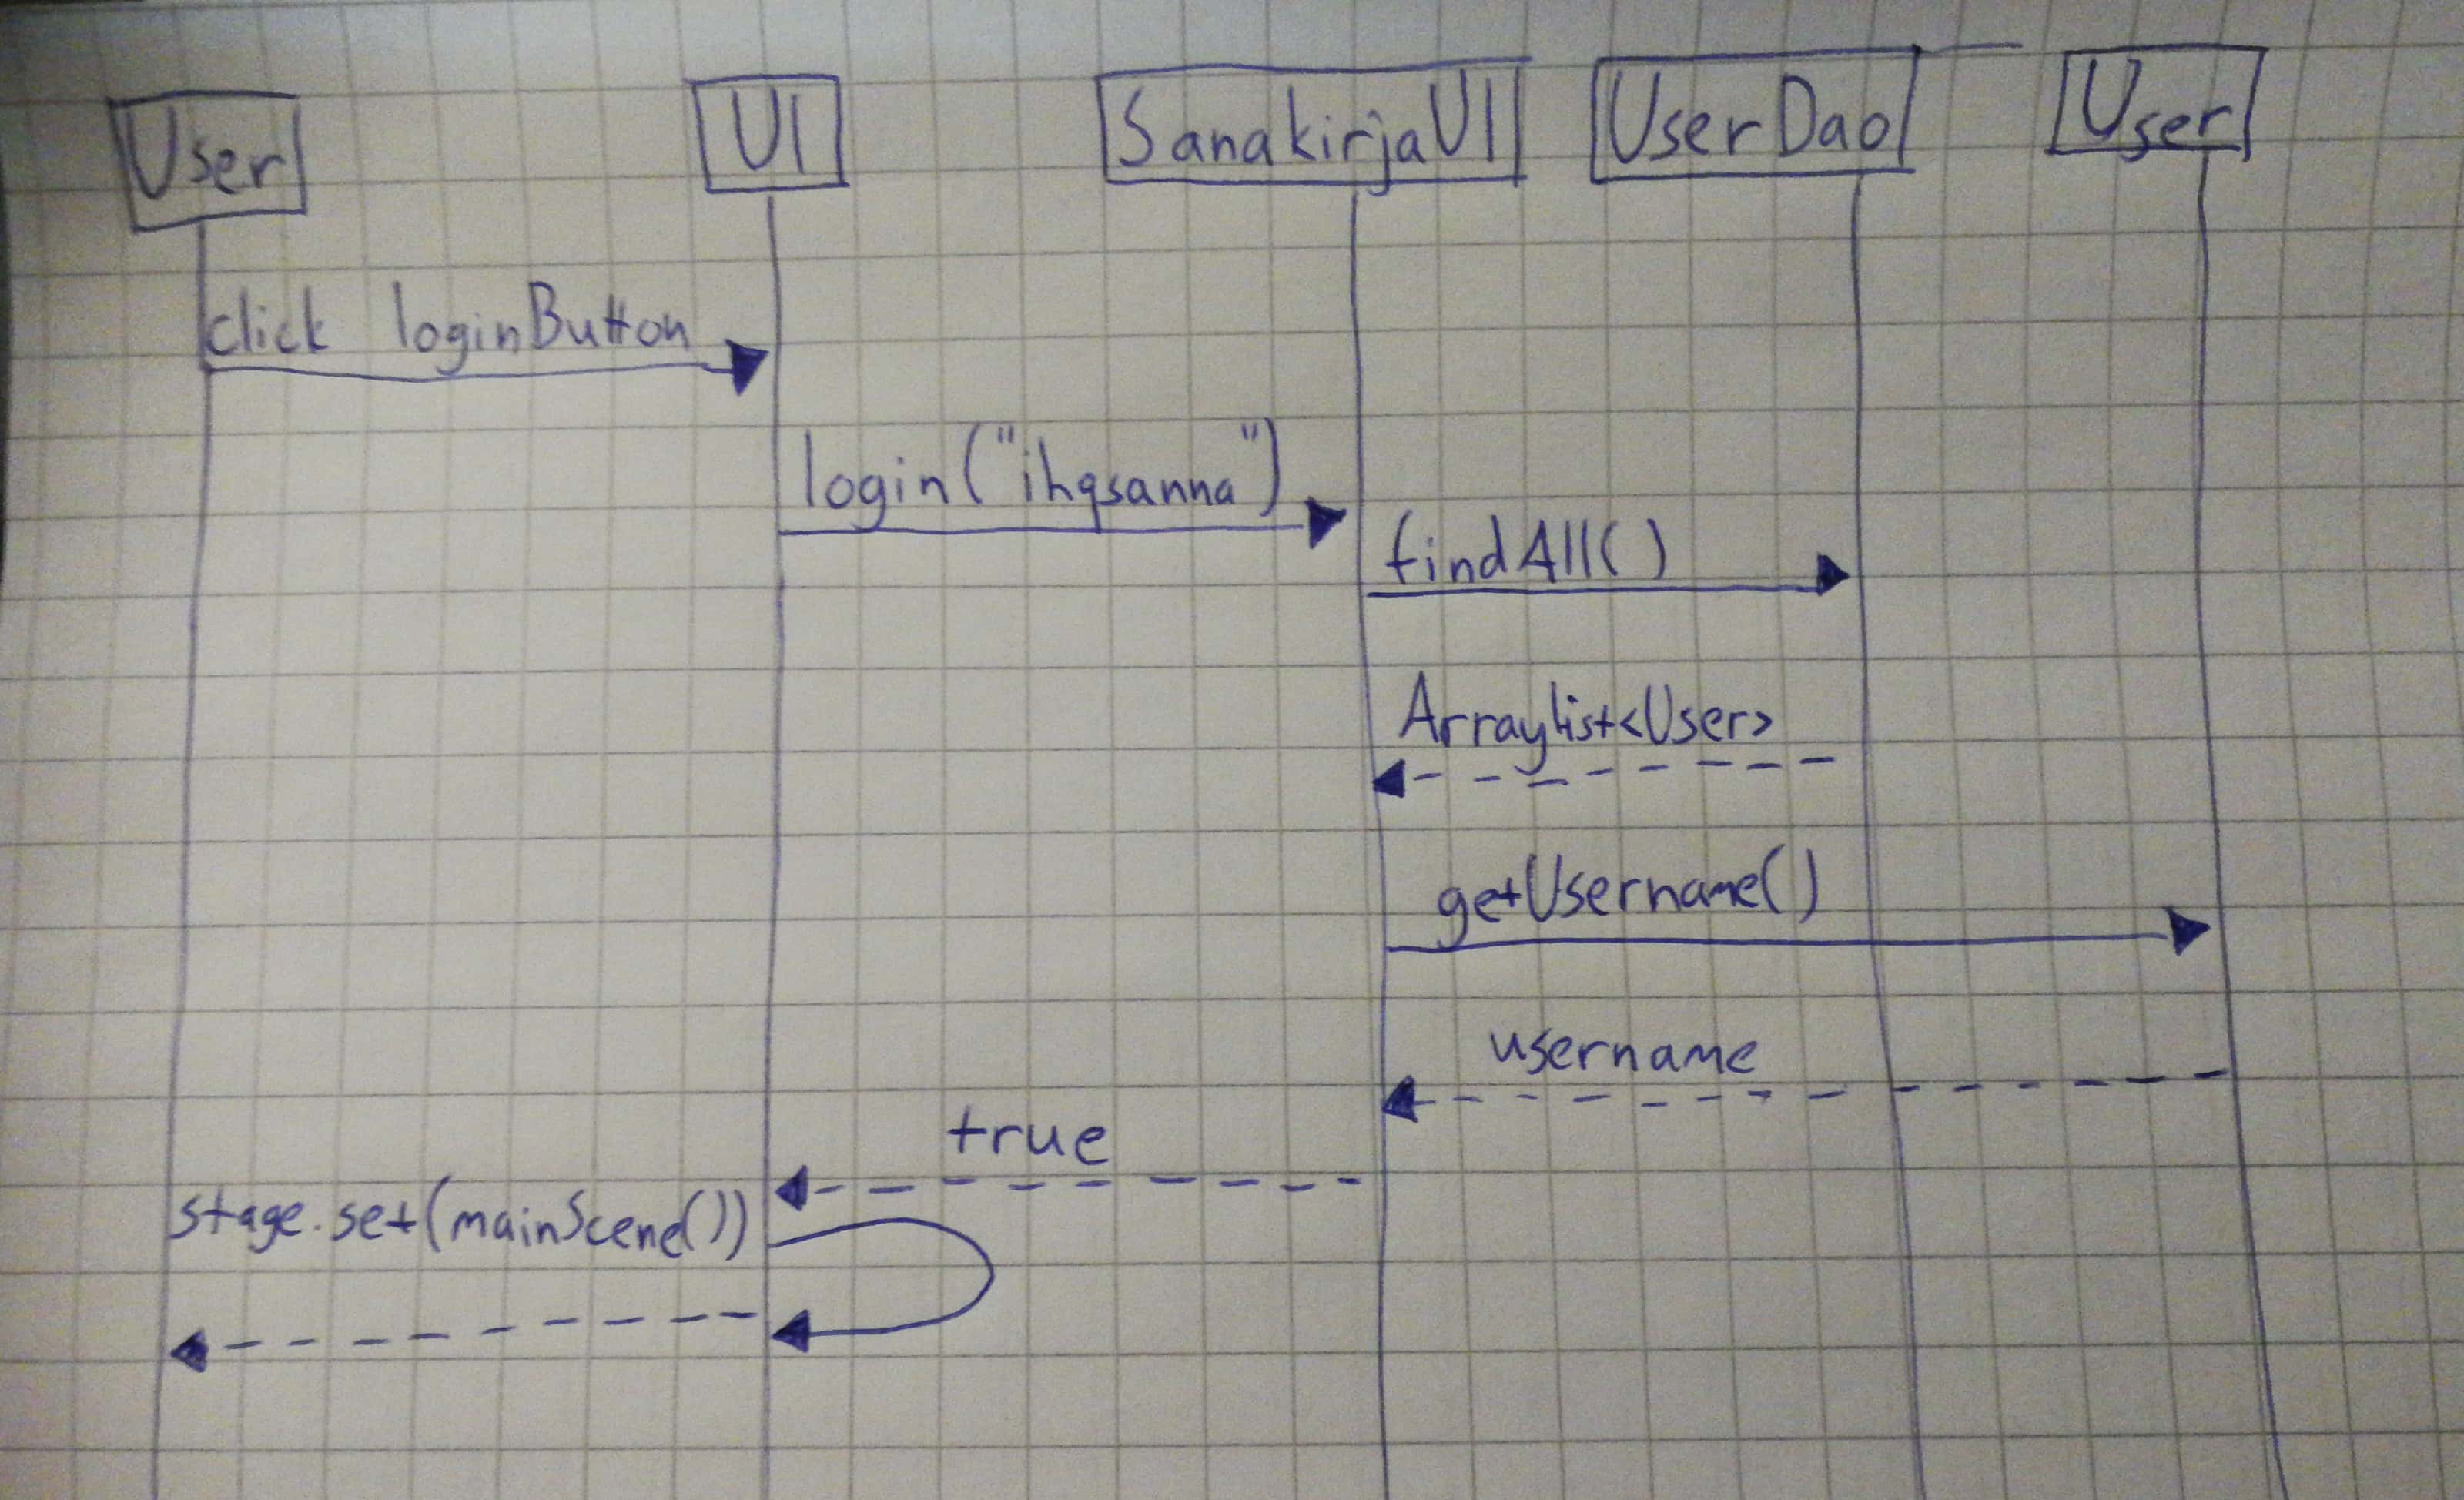 User UI SanakirjaUI UserDao User
click loginButton
login("ihqsanna")
findAll()
Arraylist<User>
getUsername()
username
true
stage.set(mainScene())